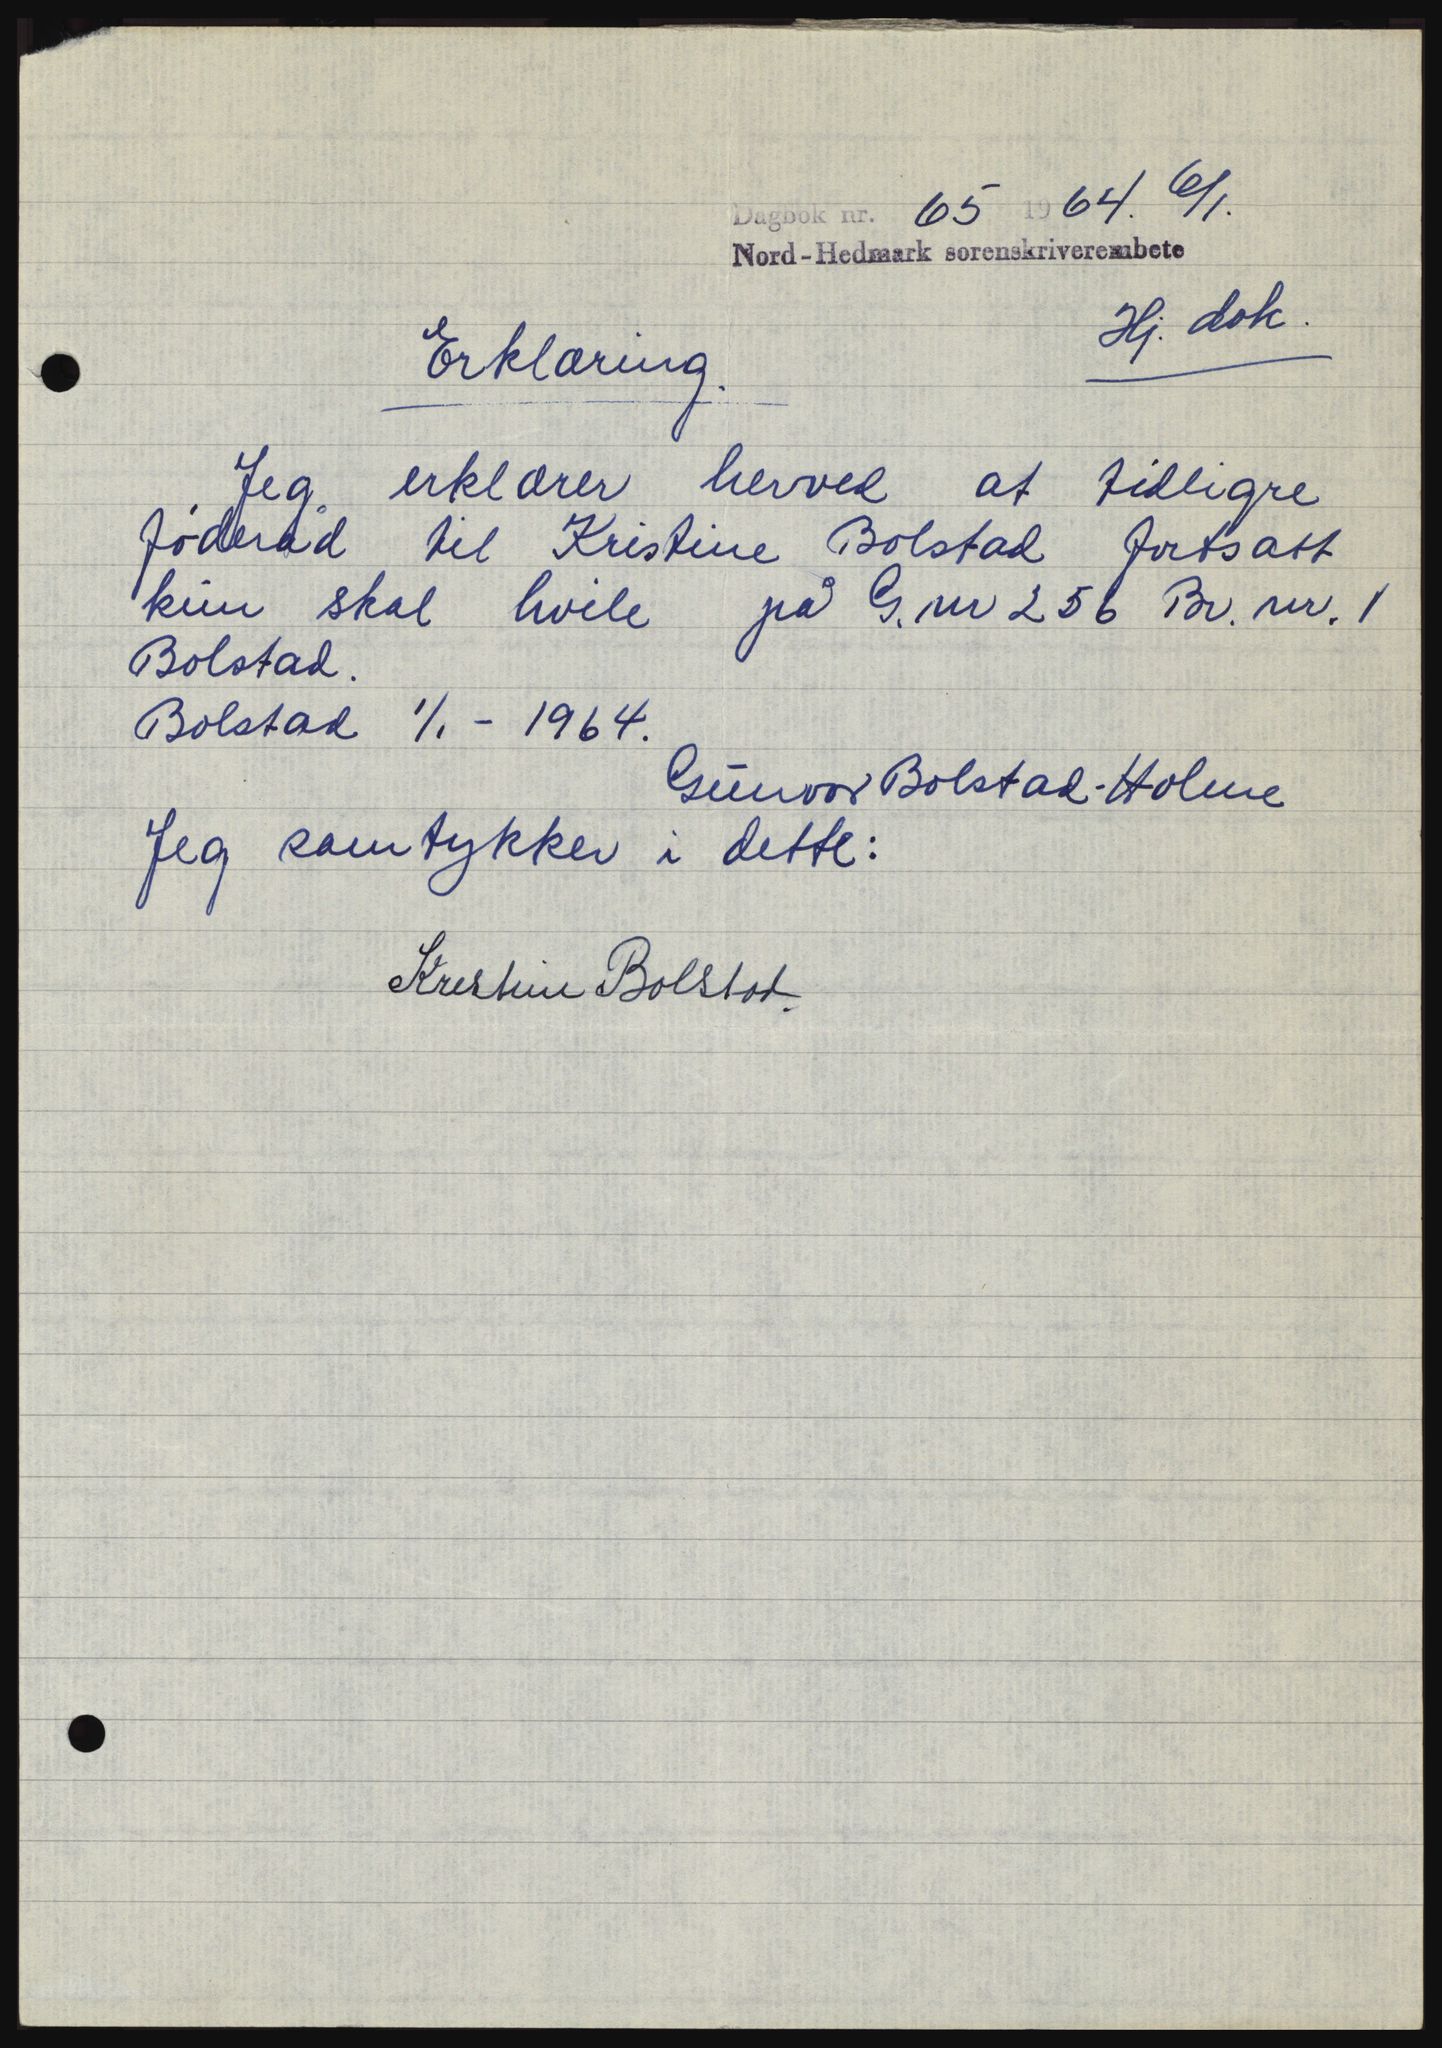 Dagbok nr. 65 1964. 6/1.
Nord-Hedmark sorenskriverembete
Hj. dok.
Erklæring.
Jeg erklærer herved at tidligre
föderåd til Kristine Bolstad fortsatt
kun skal hvile på G. nr 256 Br. nr. 1
Bolstad.
Bolstad 1/1 - 1964.
Gunvor Bolstad-Holme
Jeg samtykker i dette:
Krestine Bolstad.